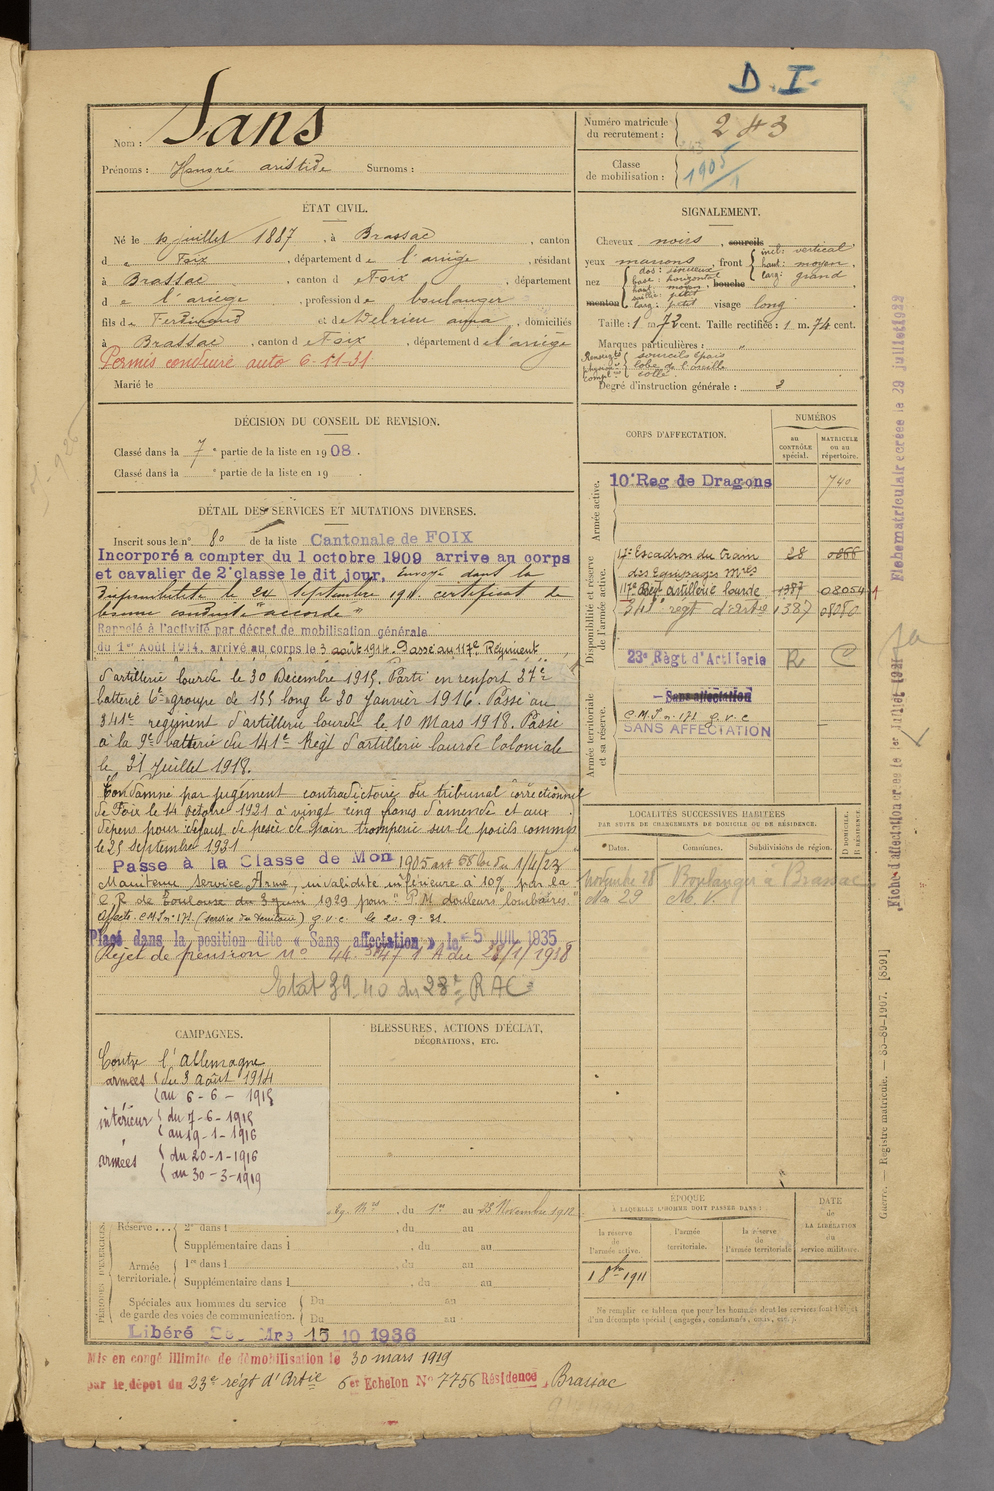 D. I.
Nom : Sans
Prénoms : Honoré aristide Surnoms :
Numéro matricule du recrutement : 243
Classe de mobilisation : 1905
ÉTAT CIVIL.
Né le 10 juillet 1887, à Brassac, canton
de Foix, département de l'ariège, résidant
à Brassac, canton d Foix, département
de l'ariège, profession de boulanger
fils de Ferdinand et de Delrieu anna, domiciliés
à Brassac, canton d Foix, département de l'ariège
Permis conduire auto 6-11-31
Marié le
SIGNALEMENT.
Cheveux noirs, sourcils
yeux marrons, front incl: vertical haut: moyen, larg: grand
nez dos: sinueux base: horizontal haut: moyen saillie: petit larg: petit bouche
menton visage long
Taille : 1 m. 73 cent. Taille rectifiée : 1 m. 74 cent.
Marques particulières : "
sourcils épais
lobe de l'oreille
collé
Degré d'instruction générale : 3
DÉCISION DU CONSEIL DE REVISION.
Classé dans la 7e partie de la liste en 1908.
Classé dans la e partie de la liste en 19
DÉTAIL DES SERVICES ET MUTATIONS DIVERSES.
Inscrit sous le n° 80 de la liste Cantonale de FOIX
Incorporé a compter du 1 octobre 1909 arrive au corps
et cavalier de 2e classe le dit jour, Envoyé dans la
Disponibilité le 24 Septembre 1911. certificat de
bonne conduite "accordé"
Rappelé à l'activité par décret de mobilisation générale
du 1er Août 1914, arrivé au corps le 3 août 1914. Passé au 117e Régiment
d'artillerie lourde le 30 Décembre 1915. Parti en renfort 37e
batterie 6e groupe de 155 long le 30 Janvier 1916. Passé au
341e régiment d'artillerie lourde le 10 Mars 1918. Passé
à la 9e batterie du 141e Régt d'artillerie lourde Coloniale
le 31 Juillet 1918.
Condamné par jugement contradictoire du tribunal correctionnel
de Foix le 14 octobre 1931 à vingt cinq francs d'amende et aux
dépens pour défaut de pesée de pain tromperie sur le poids commis
le 25 Septembre 1931
Passé à la Classe de Mon 1905 art 58 Loi du 1/4/23
Maintenu service Armé, invalidité inférieure à 10% par la
C.R. de Toulouse du 3 juin 1929 pour "P.M. douleurs lombaires."
Affecté C.M.I n° 171 (service du territoire) g.v.c. le 20.9.31.
Placé dans la position dite « Sans affectation » le 5 JUIL 1935
Rejet de pension n° 44.347 1 A du 28/1/1938
Etat 39-40 du 23e RAC
CORPS D'AFFECTATION.
NUMÉROS
au CONTRÔLE spécial.
MATRICULE ou au répertoire.
Armée active.
10e Reg de Dragons 740
Disponibilité et réserve de l'armée active.
17e Escadron du train 28
des Equipages Mres
117e Régt artillerie lourde 1387 08054
341e regt d'Artie 1387 08080
23e Règt d'Artillerie R C
Armée territoriale et sa réserve.
Sans affectation
C.M.I n. 171 g.v.c
SANS AFFECTATION
LOCALITÉS SUCCESSIVES HABITÉES
PAR SUITE DE CHANGEMENTS DE DOMICILE OU DE RÉSIDENCE.
Dates. Communes. Subdivisions de région. D DOMICILE. R RÉSIDENCE
novembre 28 Boulanger à Brassac
CAMPAGNES.
Contre l'Allemagne
armées du 3 août 1914
au 6-6-1915
intérieur du 7-6-1915
au 19-1-1916
armées du 20-1-1916
au 30-3-1919
BLESSURES, ACTIONS D'ÉCLAT,
DÉCORATIONS, ETC.
PÉRIODES D'EXERCICES.
du 1er au 23 Novembre 1912
Réserve... 2e dans l , du au
Supplémentaire dans l , du au
Armée territoriale. 1re dans l , du au
Supplémentaire dans l , du au
Spéciales aux hommes du service Du au
de garde des voies de communication. Du au
Libéré 15 10 1936
ÉPOQUE
À LAQUELLE L'HOMME DOIT PASSER DANS :
la réserve de l'armée active. l'armée territoriale. la réserve de l'armée territoriale
DATE de LA LIBÉRATION du service militaire.
1 8bre 1911
Ne remplir ce tableau que pour les hommes dont les services font l'objet
d'un décompte spécial (engagés, condamnés, omis, etc.).
Mis en congé illimité de démobilisation le 30 mars 1919
par le dépôt du 23e régt d'Artie 6er Echelon No 7756 Résidence, Brassac
Fiche matriculaire créée le 29 juillet 1932
Fiche d'affectation créée le 1er Juillet 1921
Guerre. — Registre matricule. — 85-89-1907. [8591]